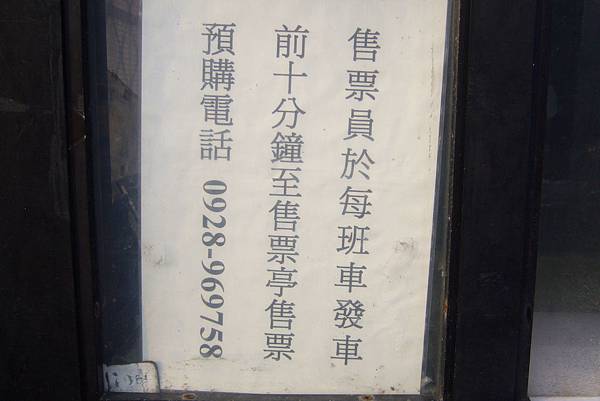 售票員於每班車發車
前十分鐘至售票亭售票
預購電話 0928-969758